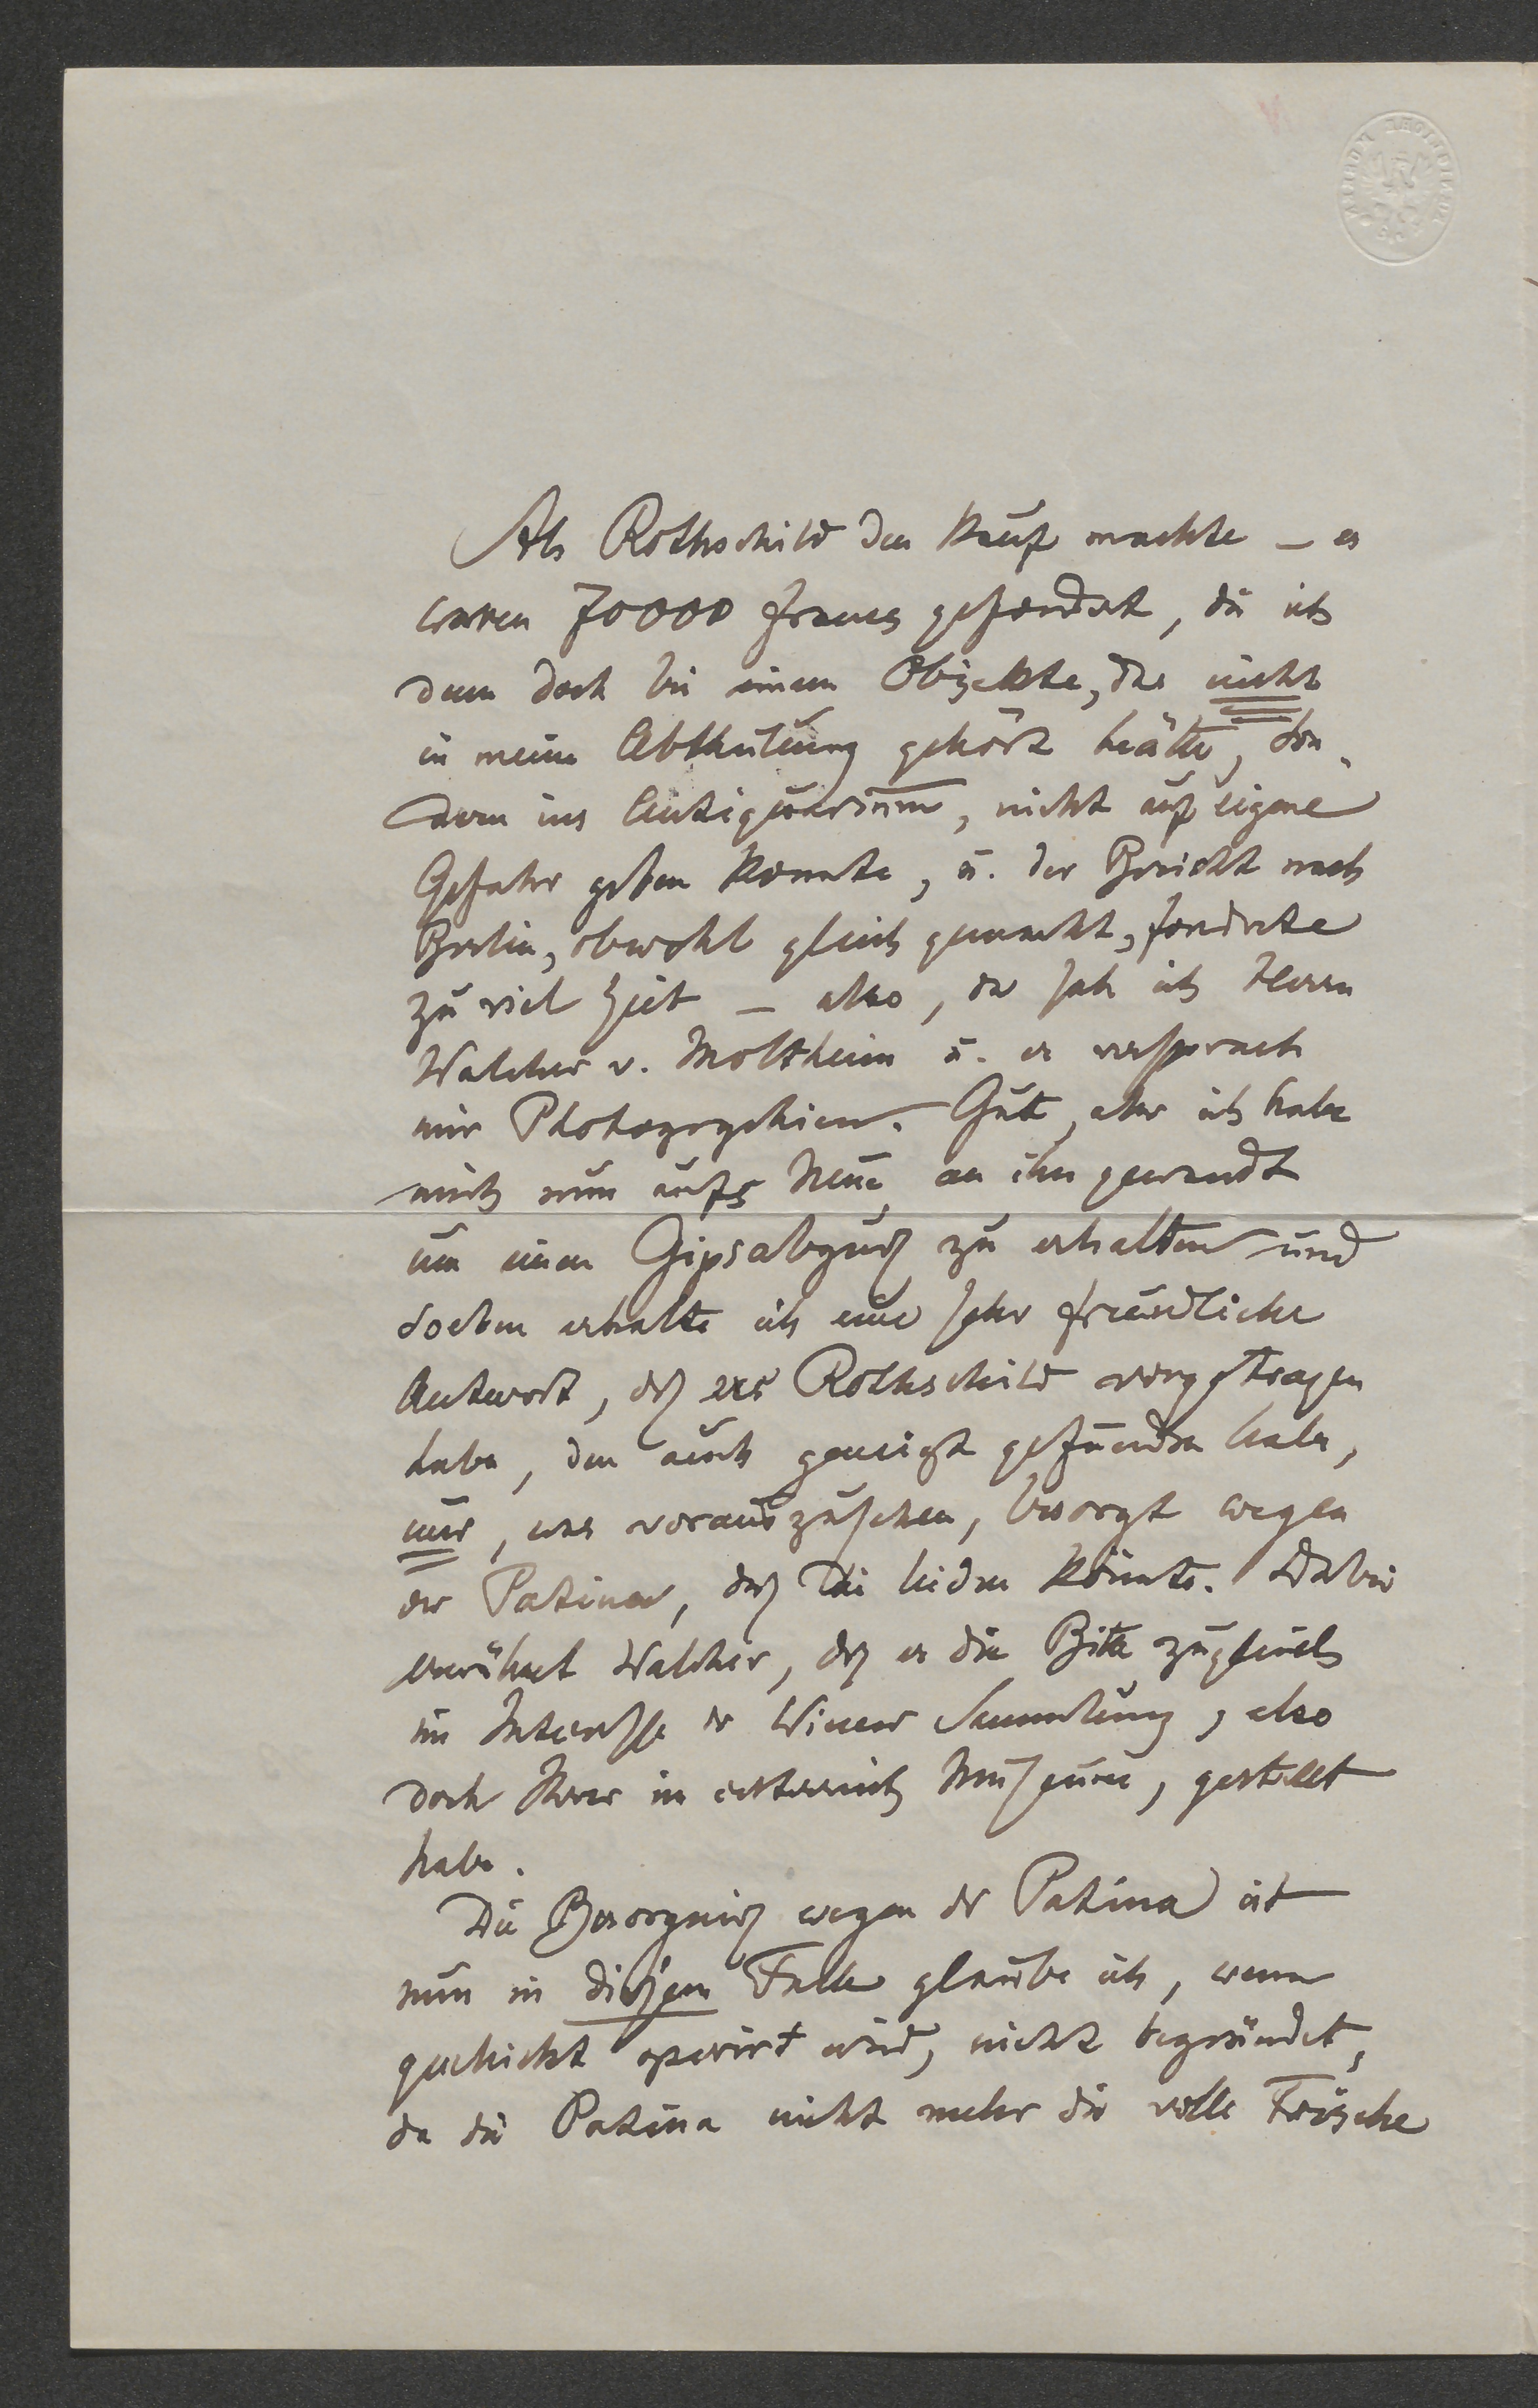 Als Rothschild den Kauf machte – es
waren 70000 francs gefordert, die ich
denn doch bei einem Objekte, das nicht
in meine Abtheilung gehört hätte, son-
dern ins Antiquarium, nicht auf eigene
Gefahr geben konnte, u. der Bericht nach
Berlin, obwohl gleich gemacht, forderte
zu viel Zeit – also, da sah ich Herrn
Walcher v. Moltheim u. er versprach
mir Photogrgphien. Gut, aber ich habe
mich nun aufs Neue an ihn gewandt
um einen Gipsabguß zu erhalten und
soeben erhalte ich eine sehr freundliche
Antwort, daß ers Rothschild vorgetragen
habe, den auch geneigt gefunden habe,
nur, was vorauszusehen, besorgt wegen
der Patina, daß die leiden könnte. Dabei
erwähnt Walcher, daß er die Bitte zugleich
im Interesse der Wiener Sammlung, also
doch Ihrer im österreich Museum, gestellt
habe.
Die Besorgniß wegen der Patina ist
nun in diesem Falle glaube ich, wenn
geschickt operirt wird, nicht begründet,
da die Patina nicht mehr die volle Frische